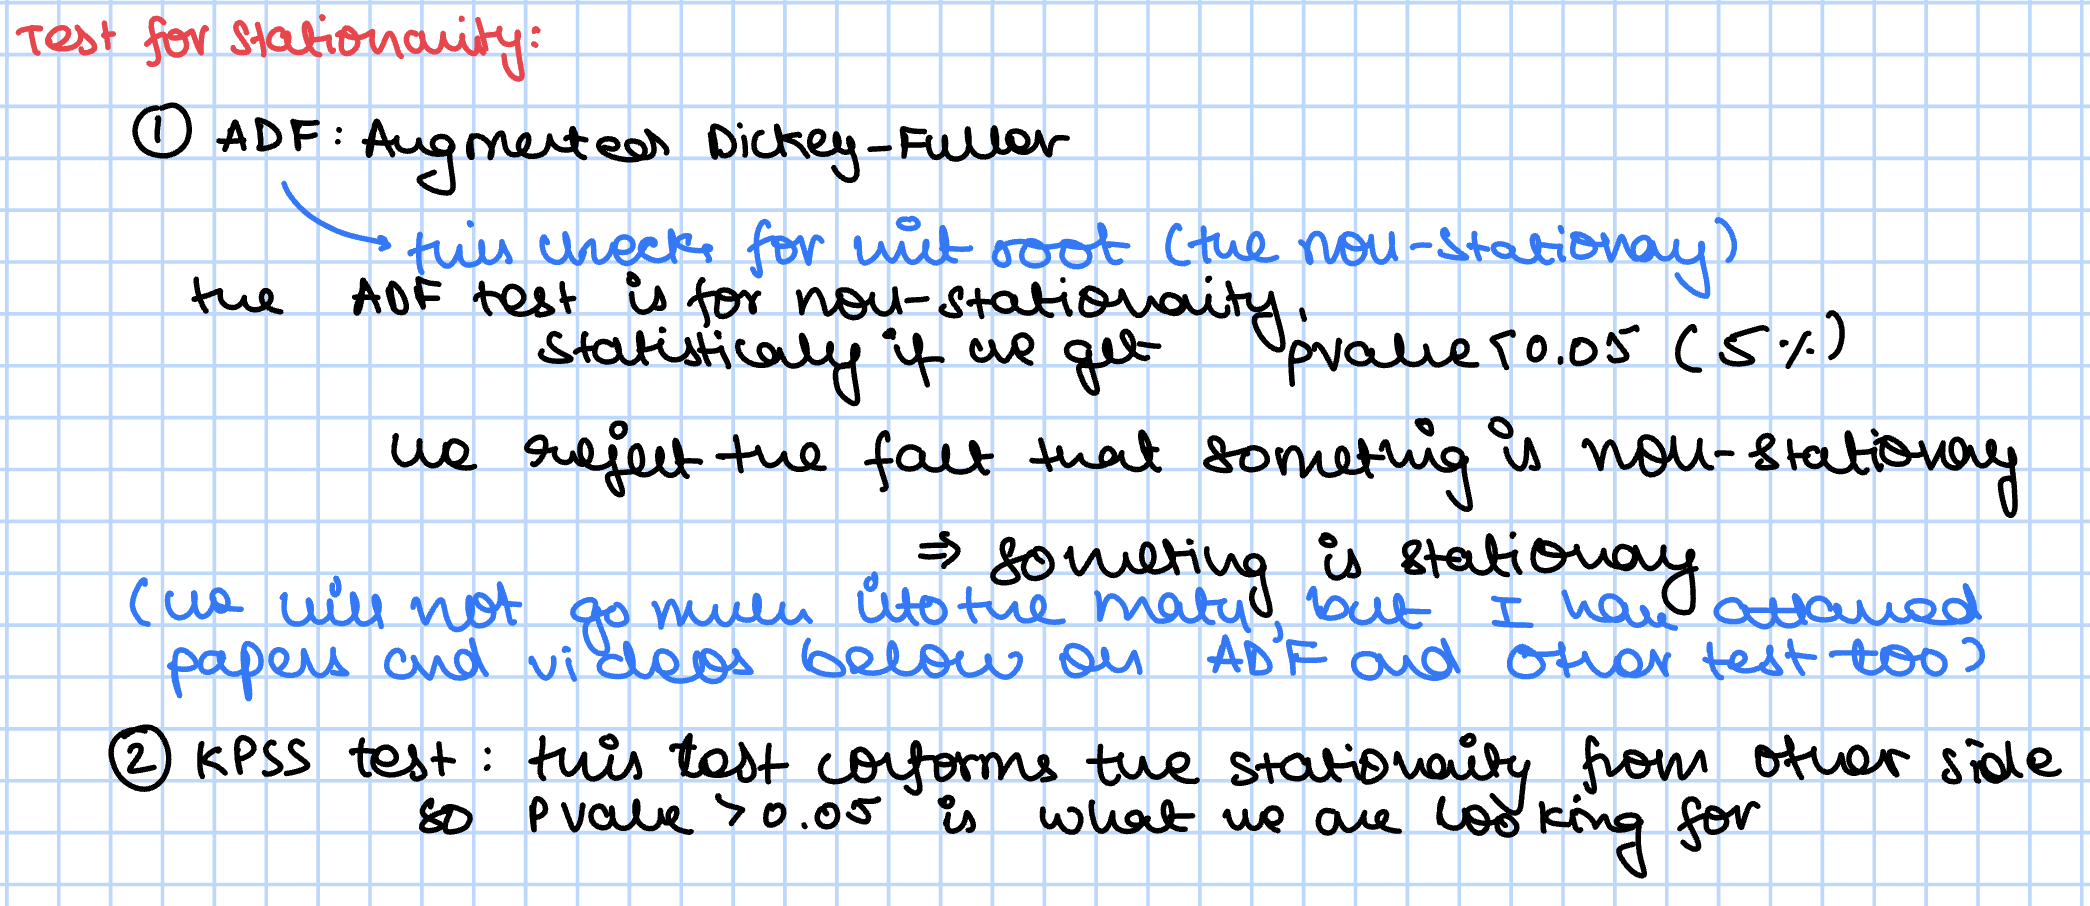 Test for Stationarity:
① ADF: Augmented Dickey-Fuller
this checks for unit root (the non-stationary)
the ADF test is for non-stationarity,
statistically if we get pvalue < 0.05 (5%)
we reject the fact that something is non-stationary
⇒ something is stationary
(we will not go much into the math, but I have attached
papers and videos below on ADF and other test too)
② KPSS test: this test conforms the stationarity from other side
so Pvalue > 0.05 is what we are looking for